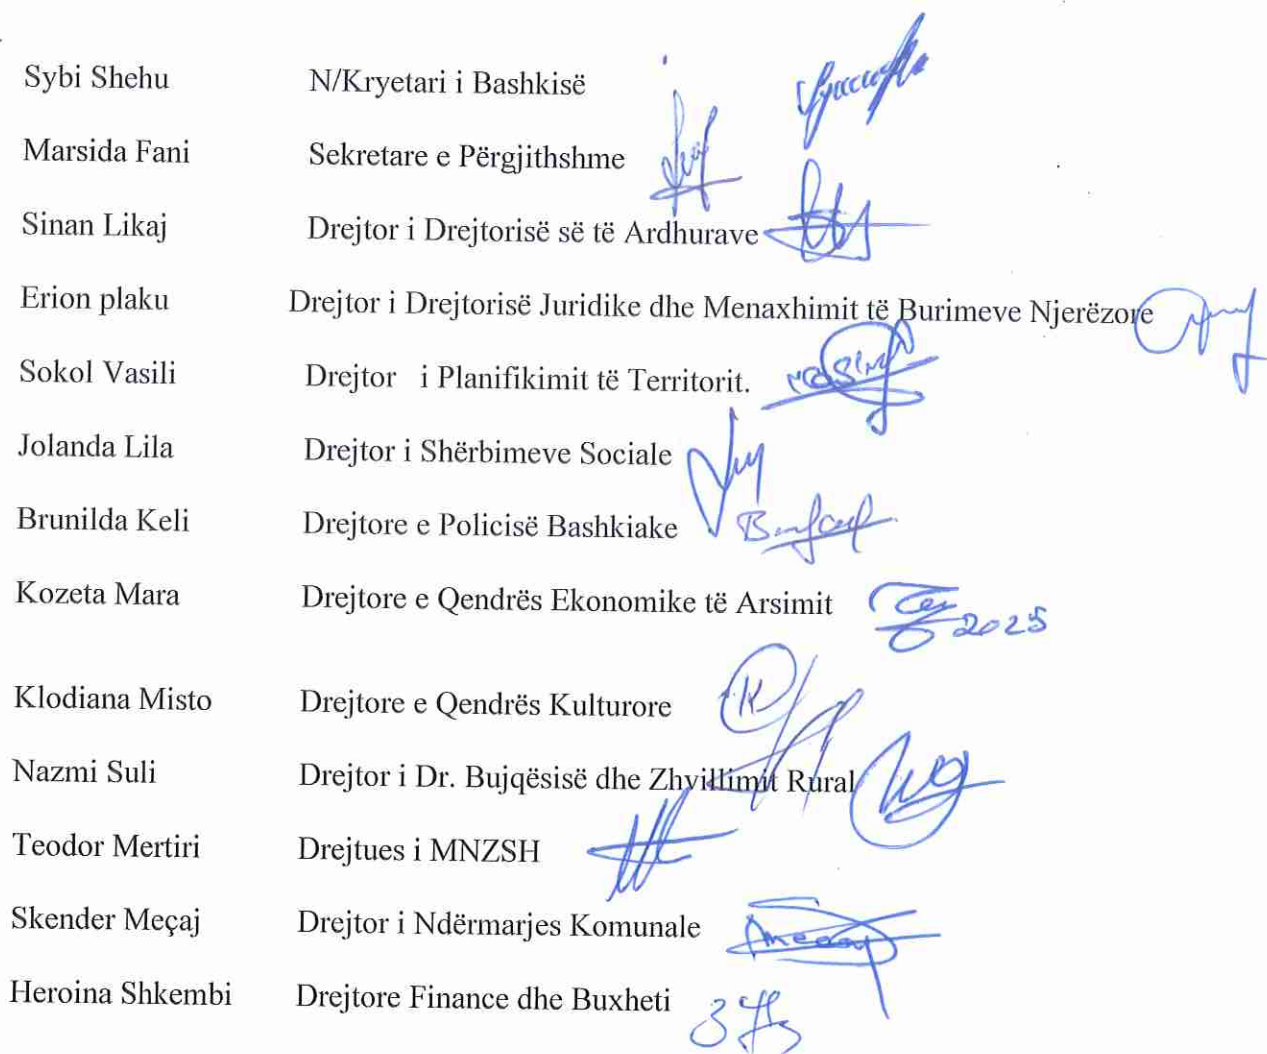 Sybi Shehu N/Kryetari i Bashkisë
Marsida Fani Sekretare e Përgjithshme
Sinan Likaj Drejtor i Drejtorisë së të Ardhurave
Erion plaku Drejtor i Drejtorisë Juridike dhe Menaxhimit të Burimeve Njerëzore
Sokol Vasili Drejtor i Planifikimit të Territorit.
Jolanda Lila Drejtor i Shërbimeve Sociale
Brunilda Keli Drejtore e Policisë Bashkiake
Kozeta Mara Drejtore e Qendrës Ekonomike të Arsimit 2025
Klodiana Misto Drejtore e Qendrës Kulturore
Nazmi Suli Drejtor i Dr. Bujqësisë dhe Zhvillimit Rural
Teodor Mertiri Drejtues i MNZSH
Skender Meçaj Drejtor i Ndërmarjes Komunale
Heroina Shkembi Drejtore Finance dhe Buxheti